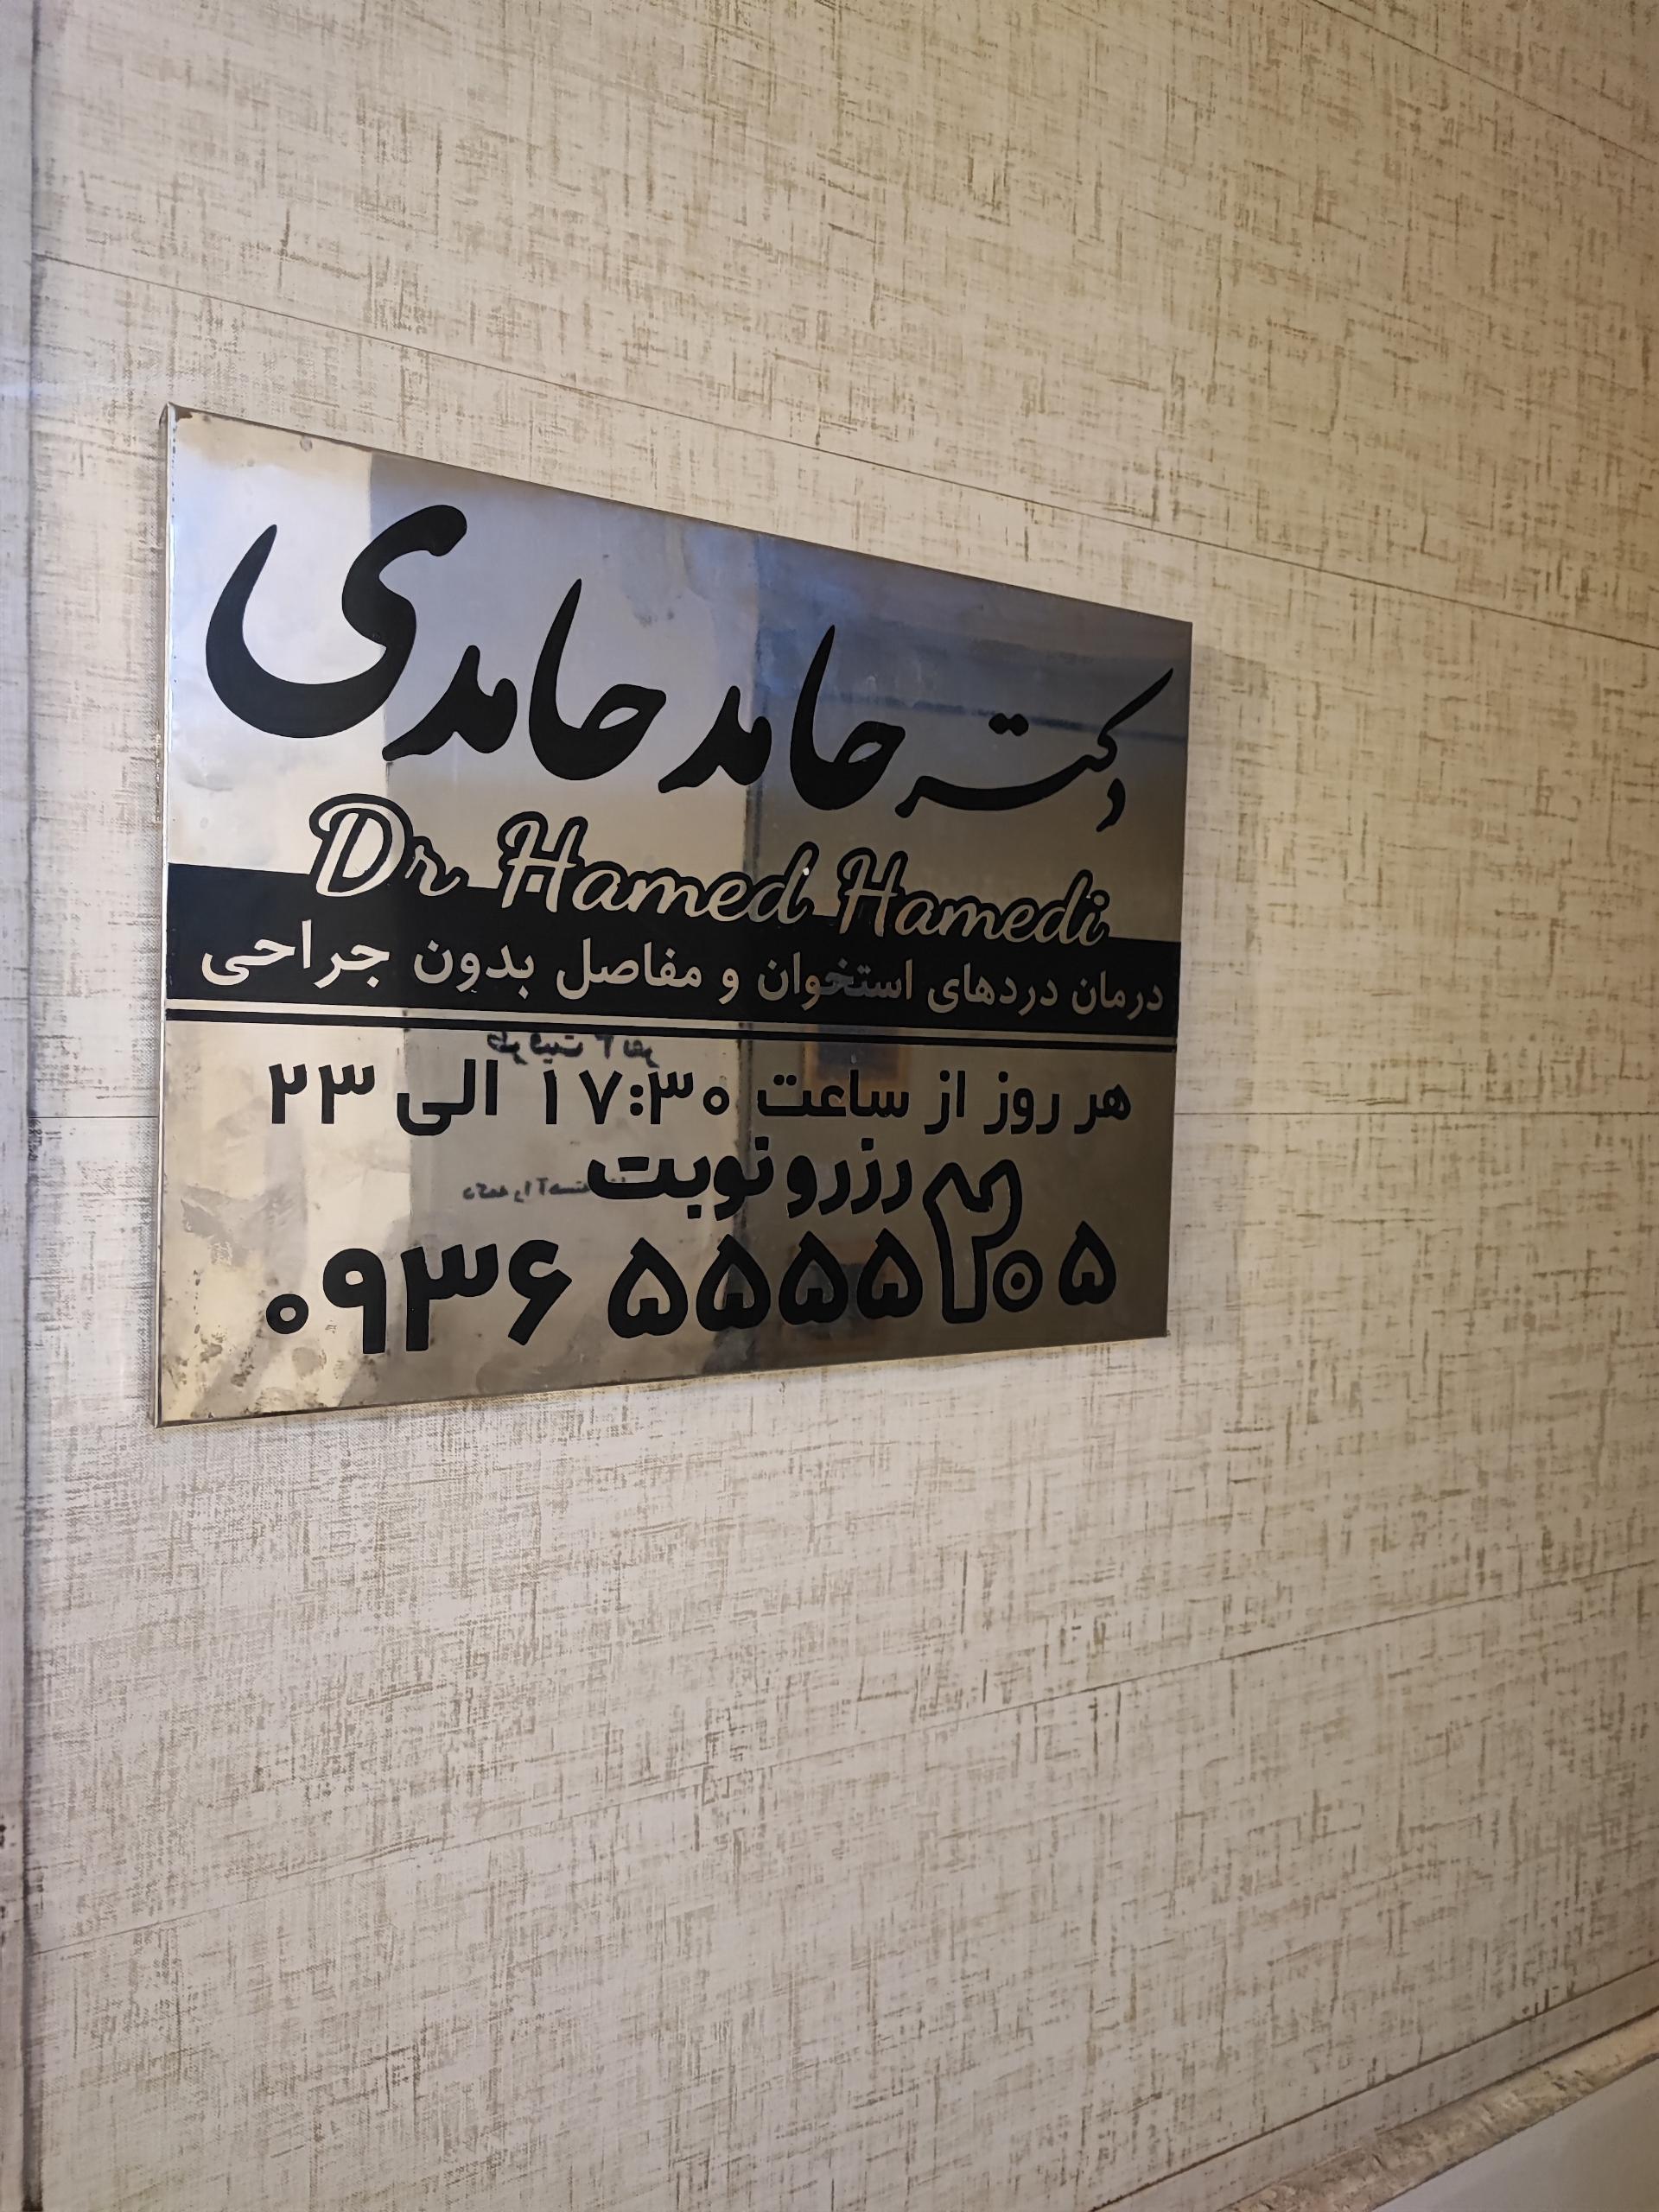 دکتر حامد حامدی
Dr Hamed Hamedi
درمان دردهای استخوان و مفاصل بدون جراحی
هر روز از ساعت ۱۷:۳۰ الی ۲۳
رزرو نوبت
۰۹۳۶ ۵۵۵۵۲۰۵